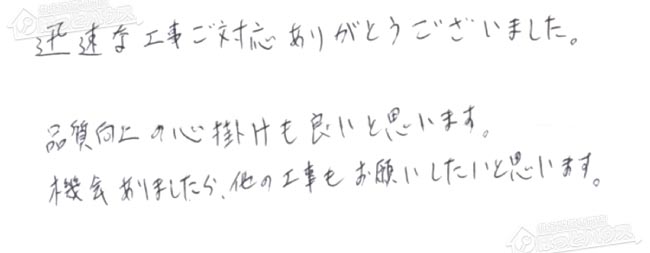 迅速な工事ご対応ありがとうございました。
品質向上の心掛けも良いと思います。
機会ありましたら、他の工事もお願いしたいと思います。